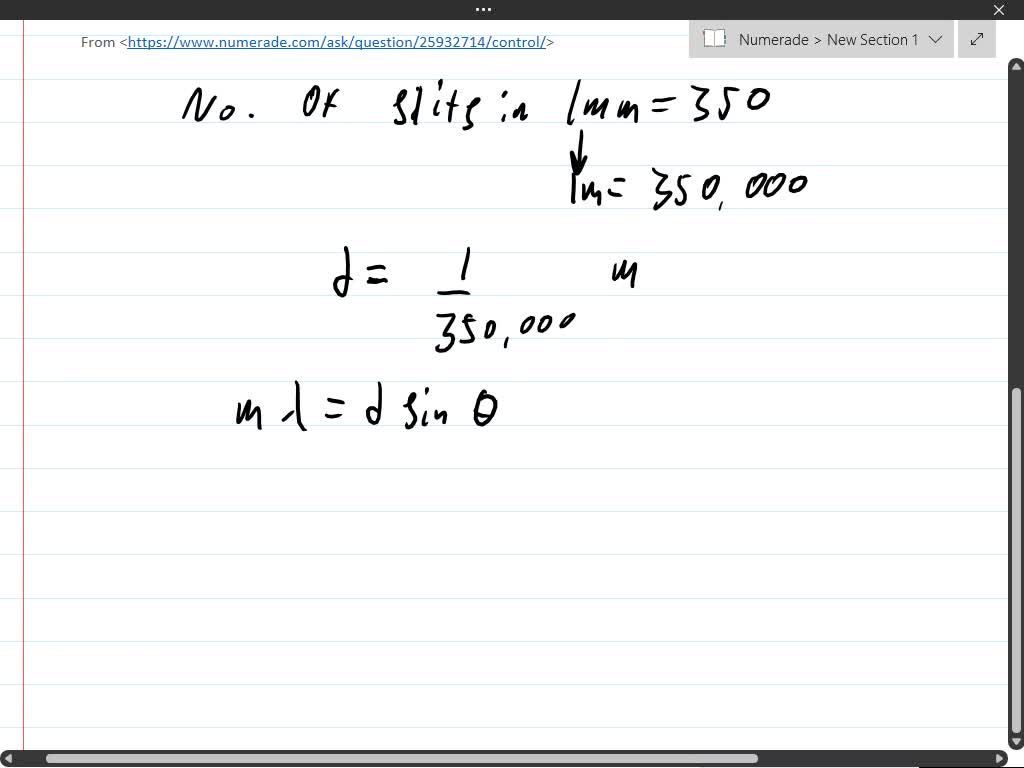 From <https://www.numerade.com/ask/question/25932714/control/>
Numerade > New Section 1
No. Of slits in 1mm = 350
1m = 350,000
d = 1/350,000 m
m λ = d sin θ